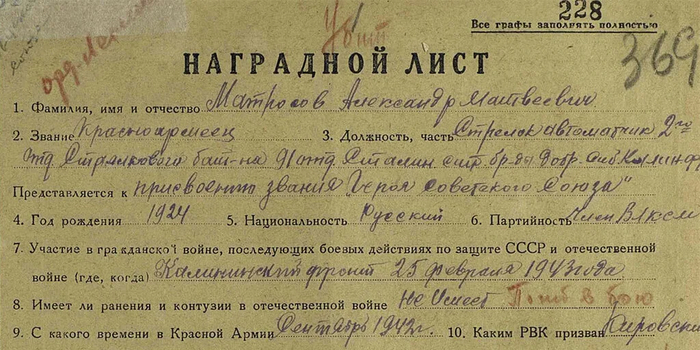 228
Все графы заполнять полностью
Убит
орд. Ленин
369
НАГРАДНОЙ ЛИСТ
1. Фамилия, имя и отчество Матросов Александр Матвеевич
2. Звание Красноармеец 3. Должность, часть Стрелок автоматчик 2го
отд. Стрелкового бат-на 91 отд. Сталин. стр. бр-ды добр.
Представляется к присвоению звания "Героя Советского Союза"
4. Год рождения 1924 5. Национальность Русский 6. Партийность Член ВЛКСМ
7. Участие в гражданской войне, последующих боевых действиях по защите СССР и отечественной
войне (где, когда) Калининский фронт 25 февраля 1943 года
8. Имеет ли ранения и контузии в отечественной войне Не имеет Погиб в бою
9. С какого времени в Красной Армии Сентябрь 1942 г. 10. Каким РВК призван Кировски